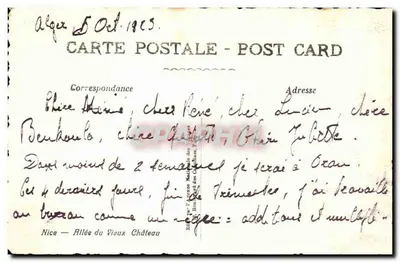 Alger, 5 Oct. 1923.
CARTE POSTALE - POST CARD
Correspondance
Adresse
Chère Mémé, cher René, cher Lucien, chère
chère chère Juliette.
Dans moins de 2 semaines je serai à Oran.
Ces 4 derniers jours, fin de Trimestre, j'ai travaillé
au bureau comme un nègre = additions et
Nice — Allée du Vieux Château